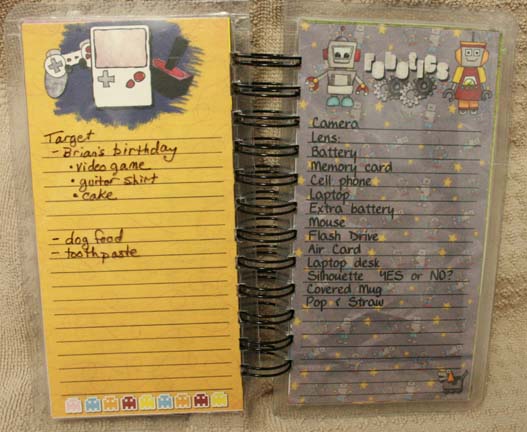 Target
- Brian's birthday
• video game
• guitar shirt
• cake
- dog food
- toothpaste
robotics
Camera
Lens
Battery
Memory card
Cell phone
Laptop
Extra battery
Mouse
Flash Drive
Air Card
Laptop desk
Silhouette YES or NO?
Covered Mug
Pop & Straw